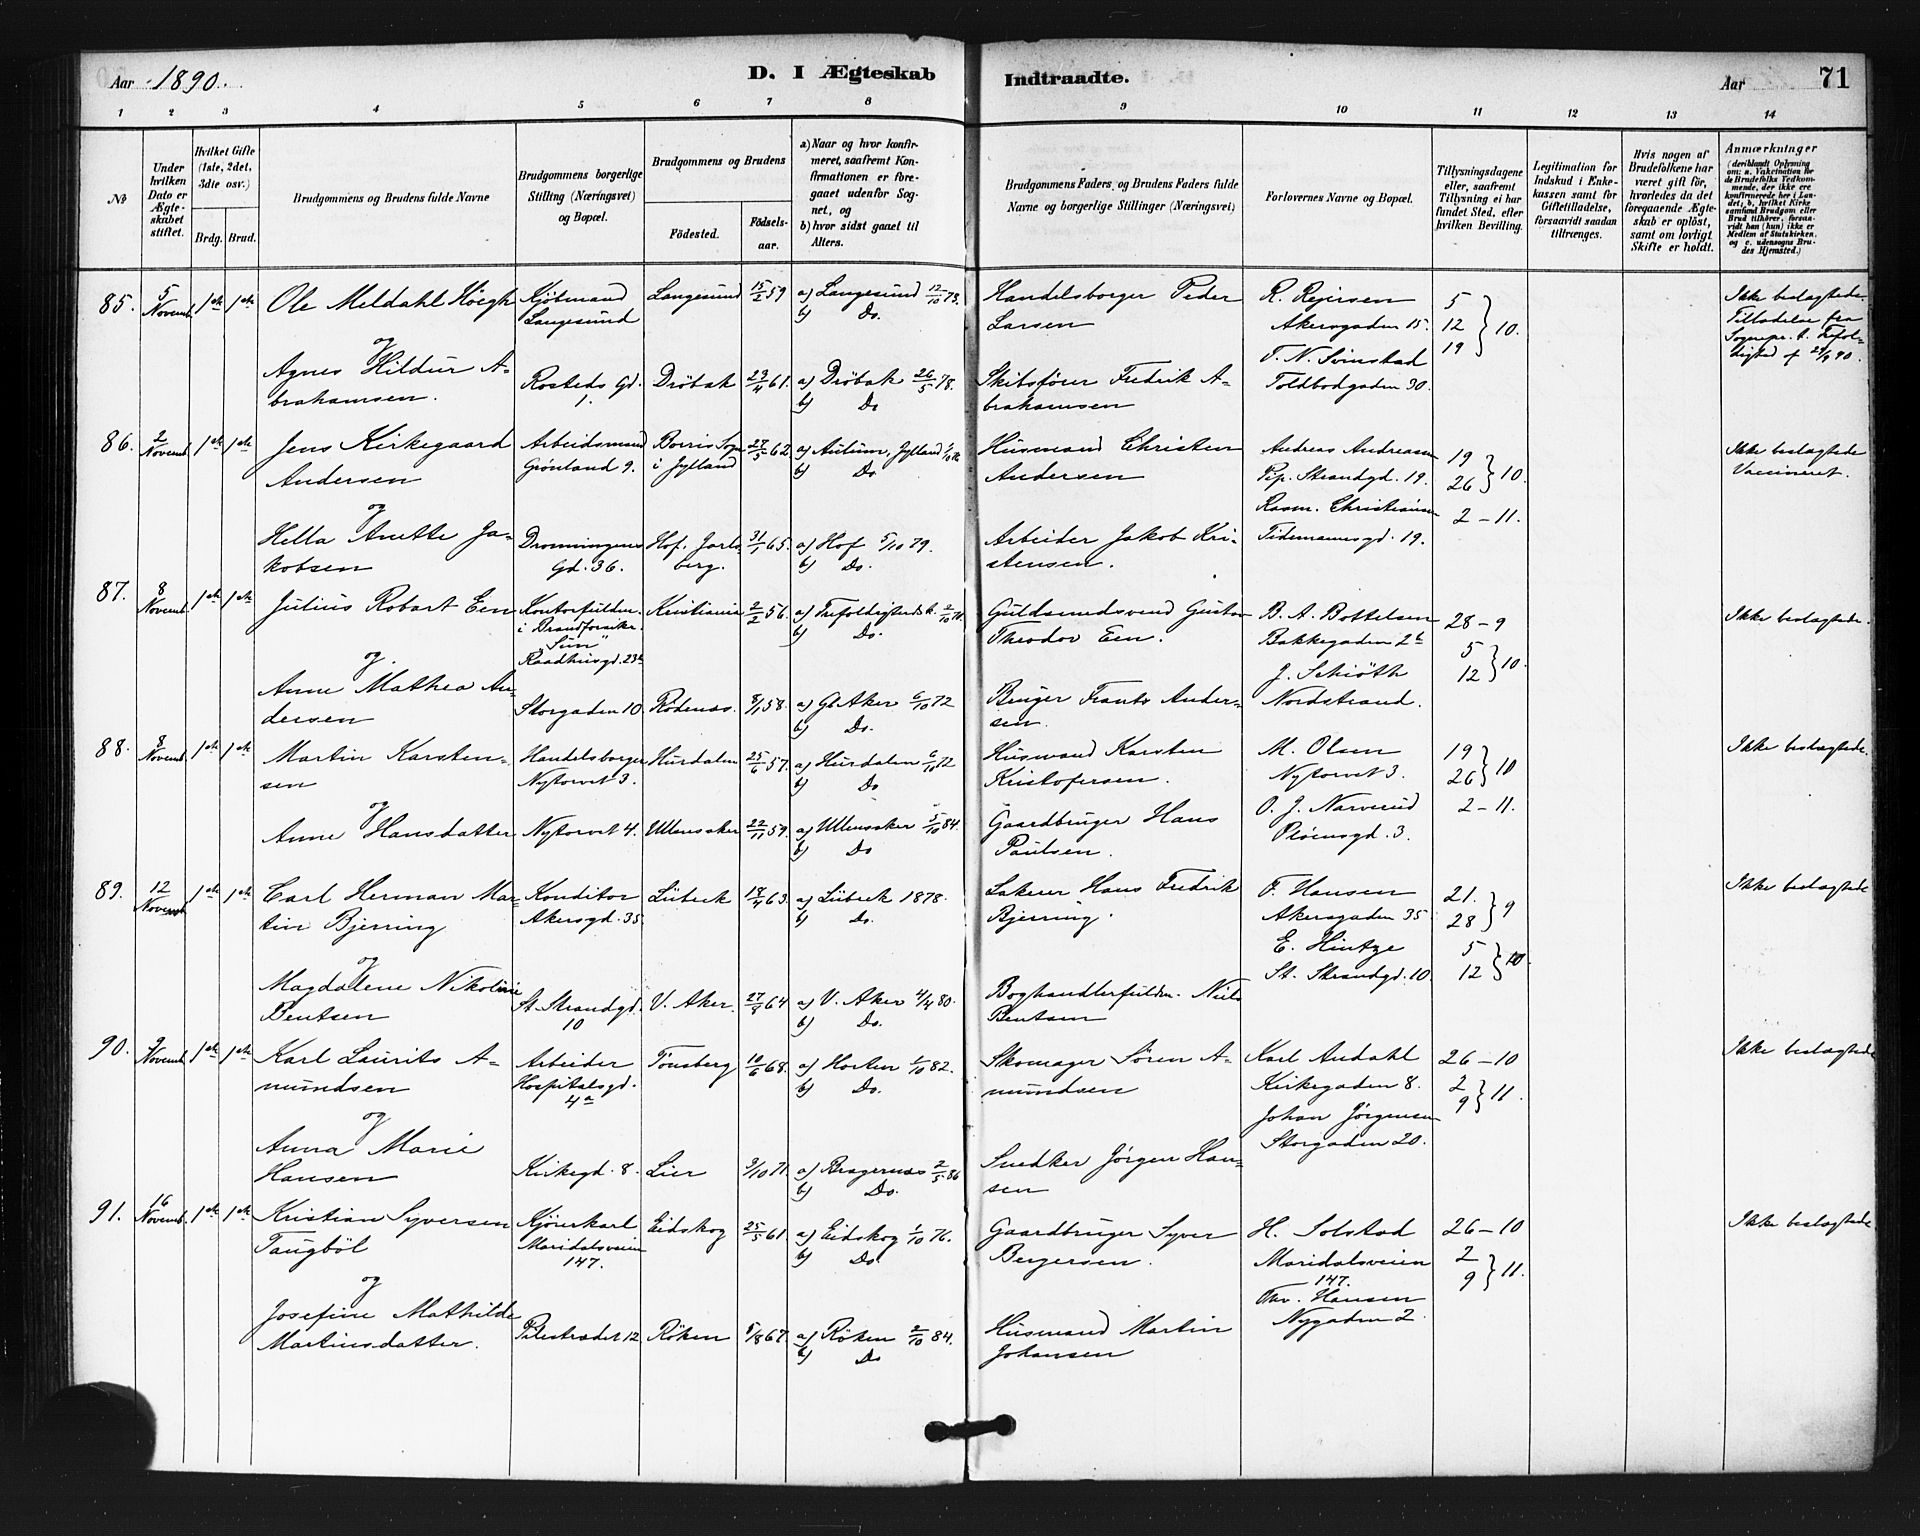 Aar 1890. D. I Ægteskab Indtraadte. Aar 71
1 2 3 4 5 6 7 8 9 10 11 12 13 14
№
Under hvilken Dato er Ægteskabet stiftet.
Hvilket Gifte (1ste, 2det, 3die osv.)
Brdg. Brud.
Brudgommens og Brudens fulde Navne
Brudgommens borgerlige Stilling (Næringsvei) og Bopæl.
Brudgommens og Brudens
Födested.
Födsels-aar.
a) Naar og hvor konfirmeret, saafremt Konfirmationen er foregaaet udenfor Sognet, og
b) hvor sidst gaaet til Alters.
Brudgommens Faders, og Brudens Faders fulde Navne og borgerlige Stillinger (Næringsvei)
Forlovernes Navne og Bopæl.
Tillysningsdagene eller, saafremt Tillysning ei har fundet Sted, efter hvilken Bevilling.
Legitimation for Indskud i Enkekassen samt for Giftetilladelse, forsaavidt saadan tiltrænges.
Hvis nogen af Brudefolkene har været gift før, hvorledes da det foregaaende Ægteskab er opløst, samt om lovligt Skifte er holdt.
Anmærkninger
(deriblandt Oplysning om: a. Vakcination for de Brudefolks Vedkommende, der ikke ere konfirmerede her i Landet; b. hvilket Kirkesamfund Brudgom eller Brud tilhører, forsaavidt han (hun) ikke er Medlem af Statskirken, og c. udensogns Brudes Hjemsted.)
85. 5 Novemb. 1ste 1ste
Ole Meldahl Höegh
Kjöbmand
Langesund
Langesund 15/2 59
a) Langesund 12/10 73.
b) Do.
Handelsborger Peder
Larsen
R. Rejersen
Akersgaden 15.
F. N. Svinstad
Toldbodgaden 30.
5
12 } 10.
19
Ikke beslægtede.
Tilladelse fra
Sognepr. t. Trefol-
dighed
og
Agnes Hildur A-
brahamsen.
Rosteds Gd.
1.
Dröbak 23/4 61.
a) Dröbak 26/5 78.
b) Do
Skibsfører Fredrik A-
brahamsen
86. 2 Novemb. 1ste 1ste
Jens Kirkegaard
Andersen
Arbeidsmand
Grønland 9.
Borris Sogn
i Jylland
27/5 62
a) Aulum, Jylland
b) Do
Husmand Christen
Andersen
Andreas Andreasen
Pip. Strandgd. 19.
Rasm. Christiansen
Tidemannsgd. 19.
19
26 } 10.
2 – 11.
Ikke beslægtede
Vaccineret.
og
Hella Anette Ja-
kobsen
Dronningens
Gd. 36.
Hof. Jarls-
berg.
31/1 65.
a) Hof 5/10 79.
b) Do.
Arbeider Jakob Kri-
stensen.
87. 8 Novemb. 1ste 1ste
Julius Robart Een
Kontorfuldm.
i Brandforsikr.
"Sun"
Raadhusgd. 23b
Kristiania 2/2 56.
a) Trefoldighedsk.
b) Do.
Guldsmedsvend Gustav
Theodor Een.
B. A. Bottelsen
Bakkegaden 2b
J. Schiöth
Nordstrand.
28 – 9
5
12 } 10.
Ikke beslægtede.
og
Anne Mathea An-
dersen
Storgaden 10
Rödenæs. 8/1 58.
a) Gl Aker 6/10 72
b) Do.
Bruger Frants Ander-
sen.
88. 8 Novemb. 1ste 1ste
Martin Karsten-
sen
Handelsborger
Nytorvet 3.
Hurdalen 25/6 57.
a) Hurdalen 6/10 72
b) Do
Husmand Karsten
Kristofersen.
M. Olsen
Nytorvet 3.
O. J. Narverud
Plöensgd. 3.
19
26 } 10
2 – 11.
Ikke beslægtede.
og
Anne Hansdatter
Nytorvet 4.
Ullensaker 22/11 59.
a) Ullensaker 5/10 84.
b) Do
Gaardbruger Hans
Paulsen.
89. 12 Novemb 1ste 1ste
Carl Herman Mar-
tin Bjerring
Konditor
Akersgd. 35
Lübeck 18/4 63.
a) Lübeck 1878.
b) Do.
Lakerer Hans Fredrik
Bjerring.
F. Hansen
Akersgaden 35
E. Hintze
St. Strandgd. 10
21.
28 } 9
5
12 } 10
Ikke beslægtede
og
Magdalene Nikoline
Bentsen
St. Strandgd.
10
V. Aker. 27/8 64
a) V. Aker 4/4 80.
b) Do.
Boghandlerfuldm. Niels
Bentsen
90. 9 Novemb. 1ste 1ste
Karl Laurits A-
mundsen
Arbeider
Hospitalsgd.
4a
Tönsberg 10/6 68.
a) Horten 1/10 82.
b) Do.
Skomager Sören A-
mundsen
Karl Andahl
Kirkegaden 8.
Johan Jörgensen
Storgaden 20.
26 – 10
2
9 } 11.
Ikke beslægtede
og
Anna Marie
Hansen
Kirkegd. 8.
Lier 9/10 71.
a) Bragernæs 2/5 86
b) Do.
Snedker Jörgen Han-
sen
91. 16 Novemb. 1ste 1ste
Kristian Syversen
Taugböl
Kjörerkarl
Maridalsveien
147.
Eidskog 25/5 61.
a) Eidskog 1/10 76.
b) Do.
Gaardbruger Syver
Bergersen.
H. Solstad
Maridalsveien
147.
Thv. Hansen
Nygaden 2.
26 – 10
2
9 } 11.
Ikke beslægtede.
og
Josefine Mathilde
Martinsdatter.
Pilestrædet 12
Röken 5/8 67.
a) Röken 2/10 84.
b) Do
Husmand Martin
Johansen